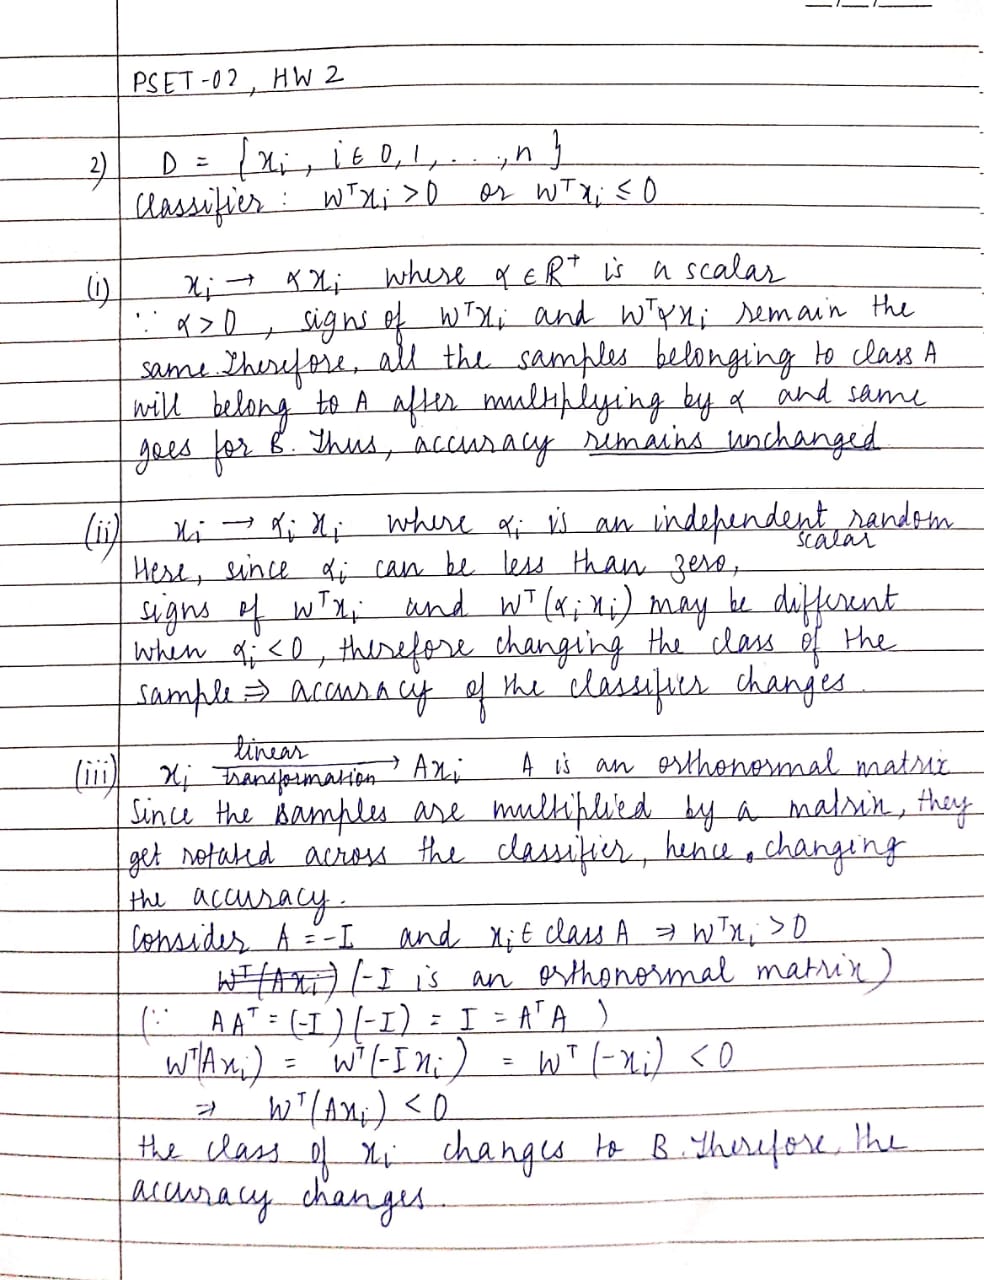 __/__/____
PSET-02, HW 2
2) D = { xᵢ, i ∈ 0, 1, ..., n }
Classifier : wᵀxᵢ > 0 or wᵀxᵢ ≤ 0
(i) xᵢ → αxᵢ where α ∈ R⁺ is a scalar
∵ α > 0, signs of wᵀxᵢ and wᵀαxᵢ remain the
same. Therefore, all the samples belonging to class A
will belong to A after multiplying by α and same
goes for B. Thus, accuracy remains unchanged
(ii) xᵢ → αᵢxᵢ where αᵢ is an independent random
scalar
Here, since αᵢ can be less than zero,
signs of wᵀxᵢ and wᵀ(αᵢxᵢ) may be different
when αᵢ < 0, therefore changing the class of the
sample ⇒ accuracy of the classifier changes.
(iii) xᵢ linear transformation → Axᵢ A is an orthonormal matrix
Since the samples are multiplied by a matrix, they
get rotated across the classifier, hence, changing
the accuracy.
Consider A = -I and xᵢ ∈ class A ⇒ wᵀxᵢ > 0
wᵀ(Axᵢ) (-I is an orthonormal matrix)
(∵ AAᵀ = (-I)(-I) = I = AᵀA )
wᵀ(Axᵢ) = wᵀ(-Ixᵢ) = wᵀ(-xᵢ) < 0
⇒ wᵀ(Axᵢ) < 0
the class of xᵢ changes to B. Therefore, the
accuracy changes.